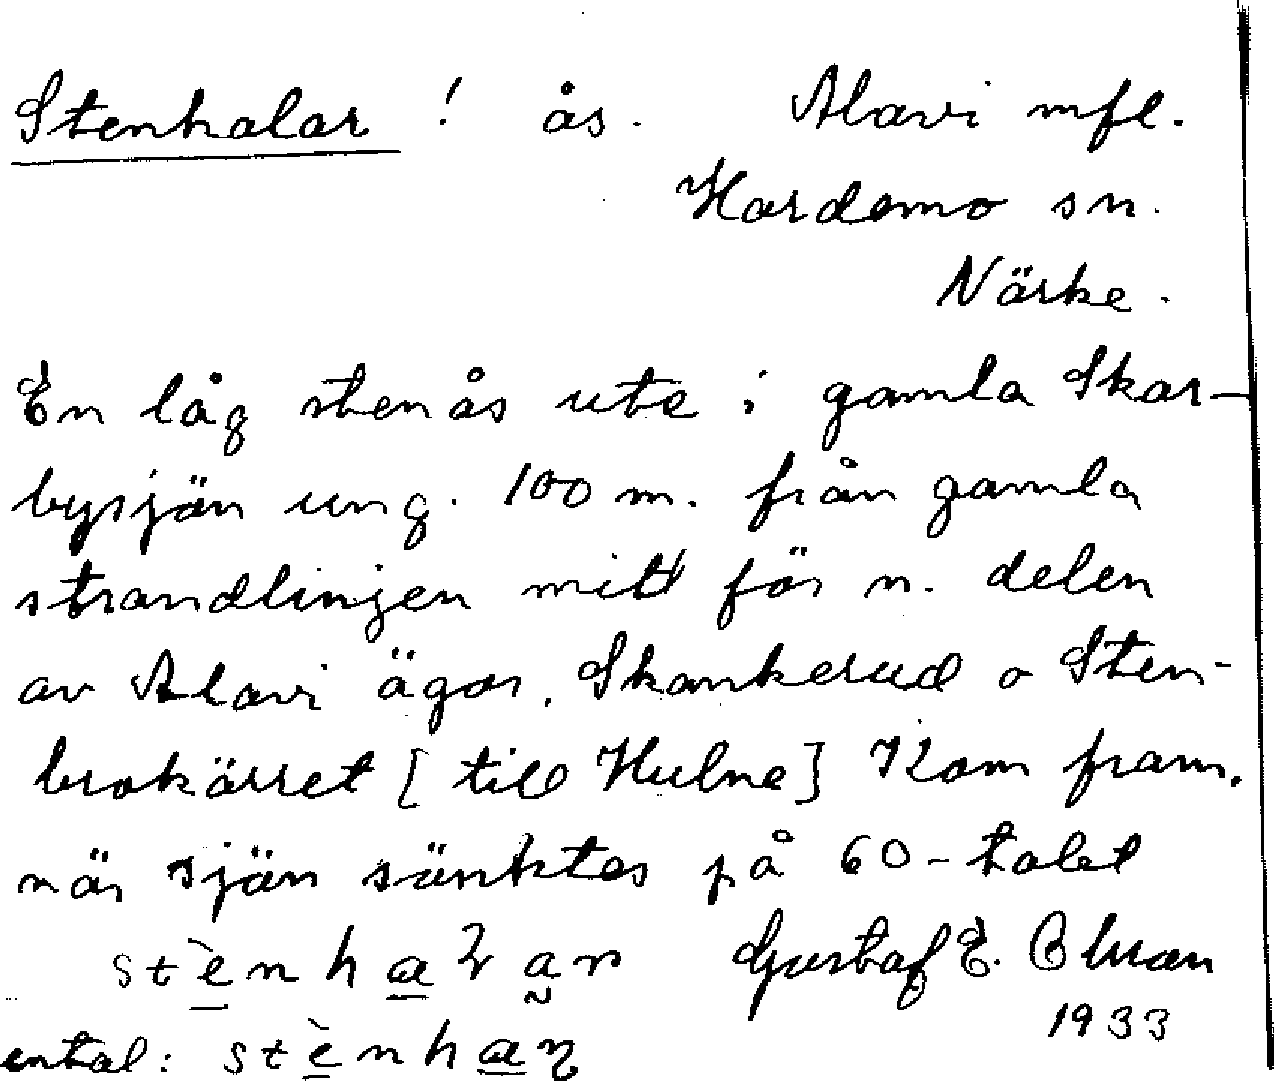 Stenhalar ! ås. Alavi mfl.
Hardemo sn.
Närke.
En låg stenås ute i gamla Skar-
bysjön ung. 100 m. från gamla
strandlinjen mitt för n. delen
av Alavi ägor, Skankerud o Sten-
brokärret [till Hulne] Kom fram,
när sjön sänktes på 60-talet
Gustaf E.
1933
ental: